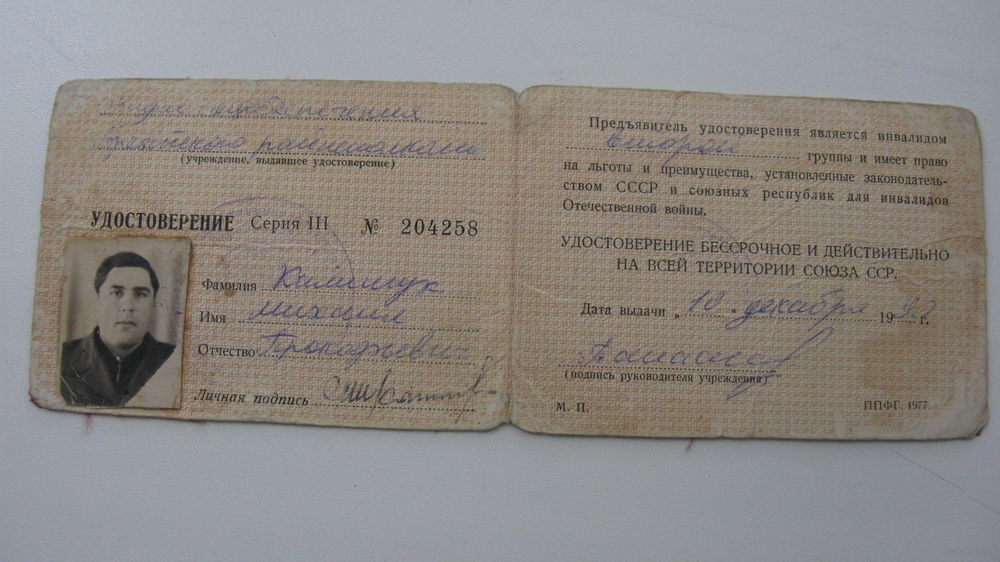 (учреждение, выдавшее удостоверение)
УДОСТОВЕРЕНИЕ Серия III № 204258
Фамилия
Имя Михаил
Отчество Прокофьевич
Личная подпись
Предъявитель удостоверения является инвалидом
Второй группы и имеет право
на льготы и преимущества, установленные законодатель-
ством СССР и союзных республик для инвалидов
Отечественной войны.
УДОСТОВЕРЕНИЕ БЕССРОЧНОЕ И ДЕЙСТВИТЕЛЬНО
НА ВСЕЙ ТЕРРИТОРИИ СОЮЗА ССР.
Дата выдачи „10" декабря 19 г.
(подпись руководителя учреждения)
М. П. ППФГ. 1977.